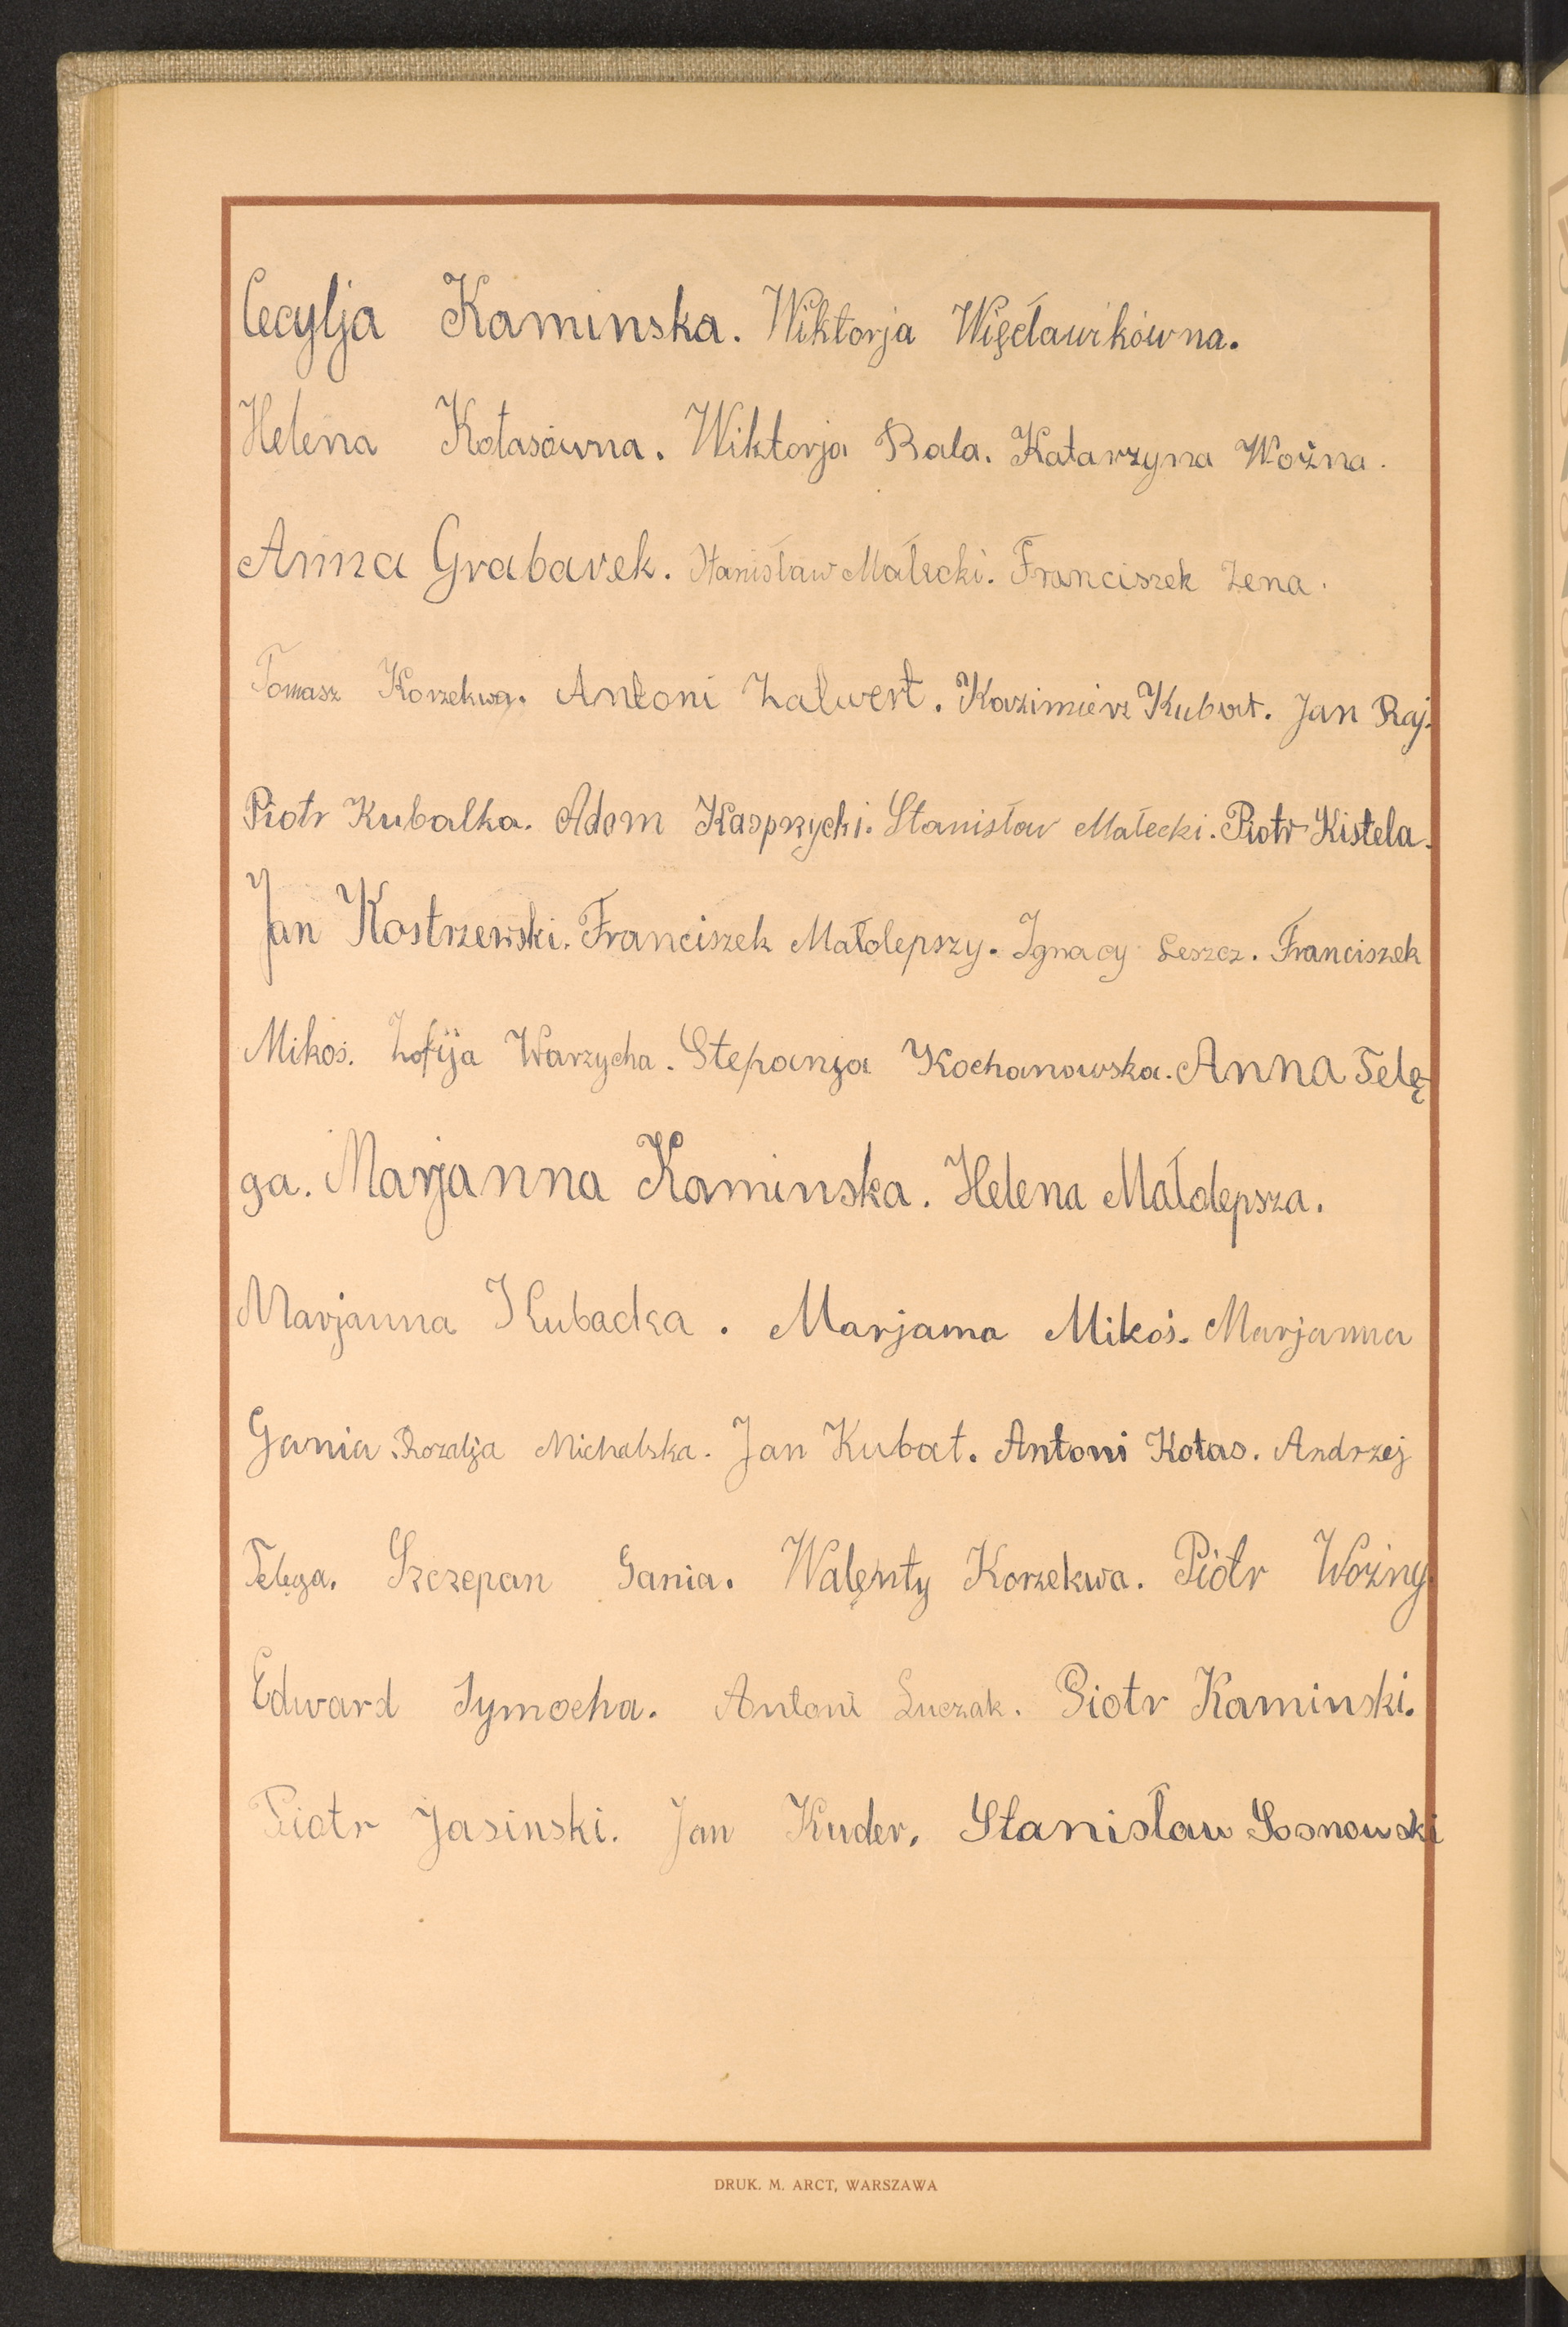 Cecylja Kaminska. Wiktorja Więcławikówna.
Helena Kotasówna. Wiktorja Rala. Katarzyna Woźna.
Anna Grabarek. Stanisław Małecki. Franciszek Zena.
Tomasz Korzekwa. Antoni Zalwert. Kazimierz Kubat. Jan Raj.
Piotr Kubalka. Adam Kasprzycki. Stanisław Małecki. Piotr Kistela.
Jan Kostrzewski. Franciszek Małolepszy. Ignacy Leszcz. Franciszek
Mikoś. Zofija Warzycha. Stepanja Kochanowska. Anna Telę
ga. Marjanna Kaminska. Helena Małolepsza.
Marjanna Kubacka. Marjanna Mikoś. Marjanna
Gania. Rozalja Michalska. Jan Kubat. Antoni Kotas. Andrzej
Telęga. Szczepan Gania. Walęnty Korzekwa. Piotr Woźny.
Edward Symocha. Antoni Luczak. Piotr Kaminski.
Piotr Jasinski. Jan Kuder. Stanisław Sosnowski
DRUK. M. ARCT, WARSZAWA